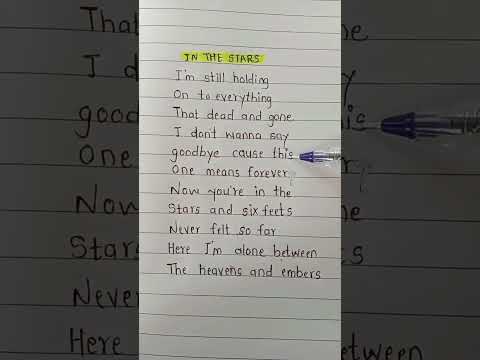 IN THE STARS
I'm still holding
On to everything
That dead and gone
I don't wanna say
goodbye cause this
One means forever,
Now you're in the
Stars and six feets
Never felt so far
Here I'm alone between
The heavens and embers